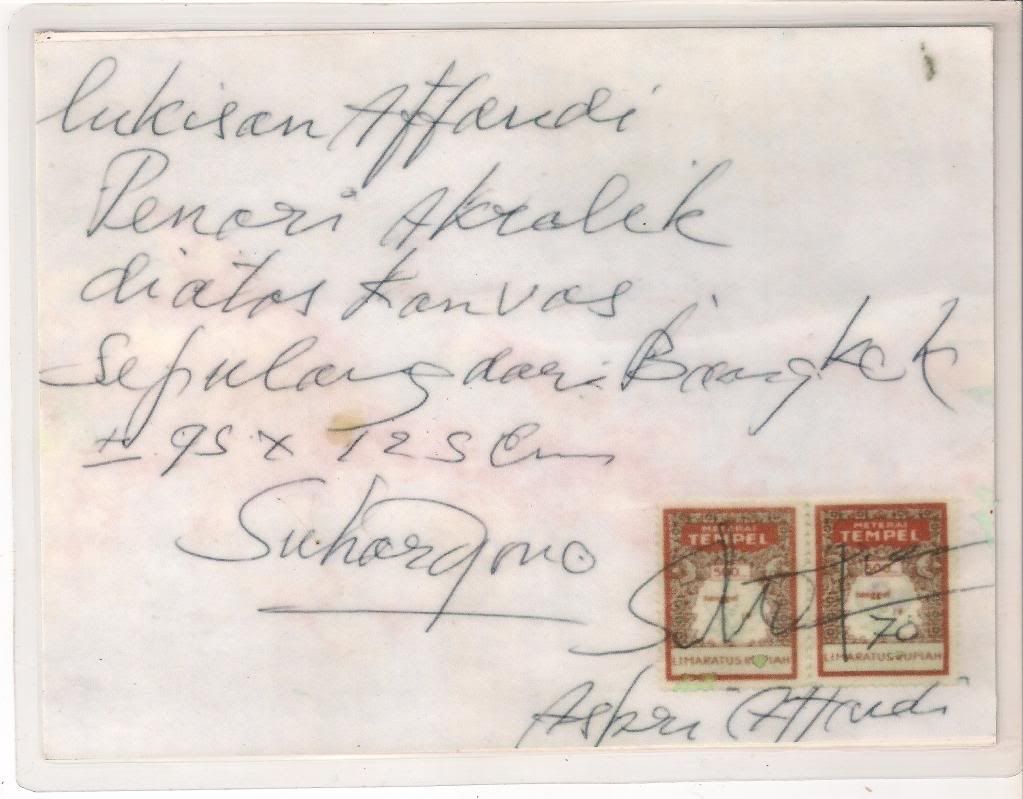 lukisan Affandi
Penari Akralik
diatas kanvas
Sepulang dari Bangkok
± 95 x 125 Cm
Suhargono
METERAI TEMPEL
500
tanggal
LIMARATUS RUPIAH
METERAI TEMPEL
500
tanggal
70
LIMARATUS RUPIAH
Aspri Affandi